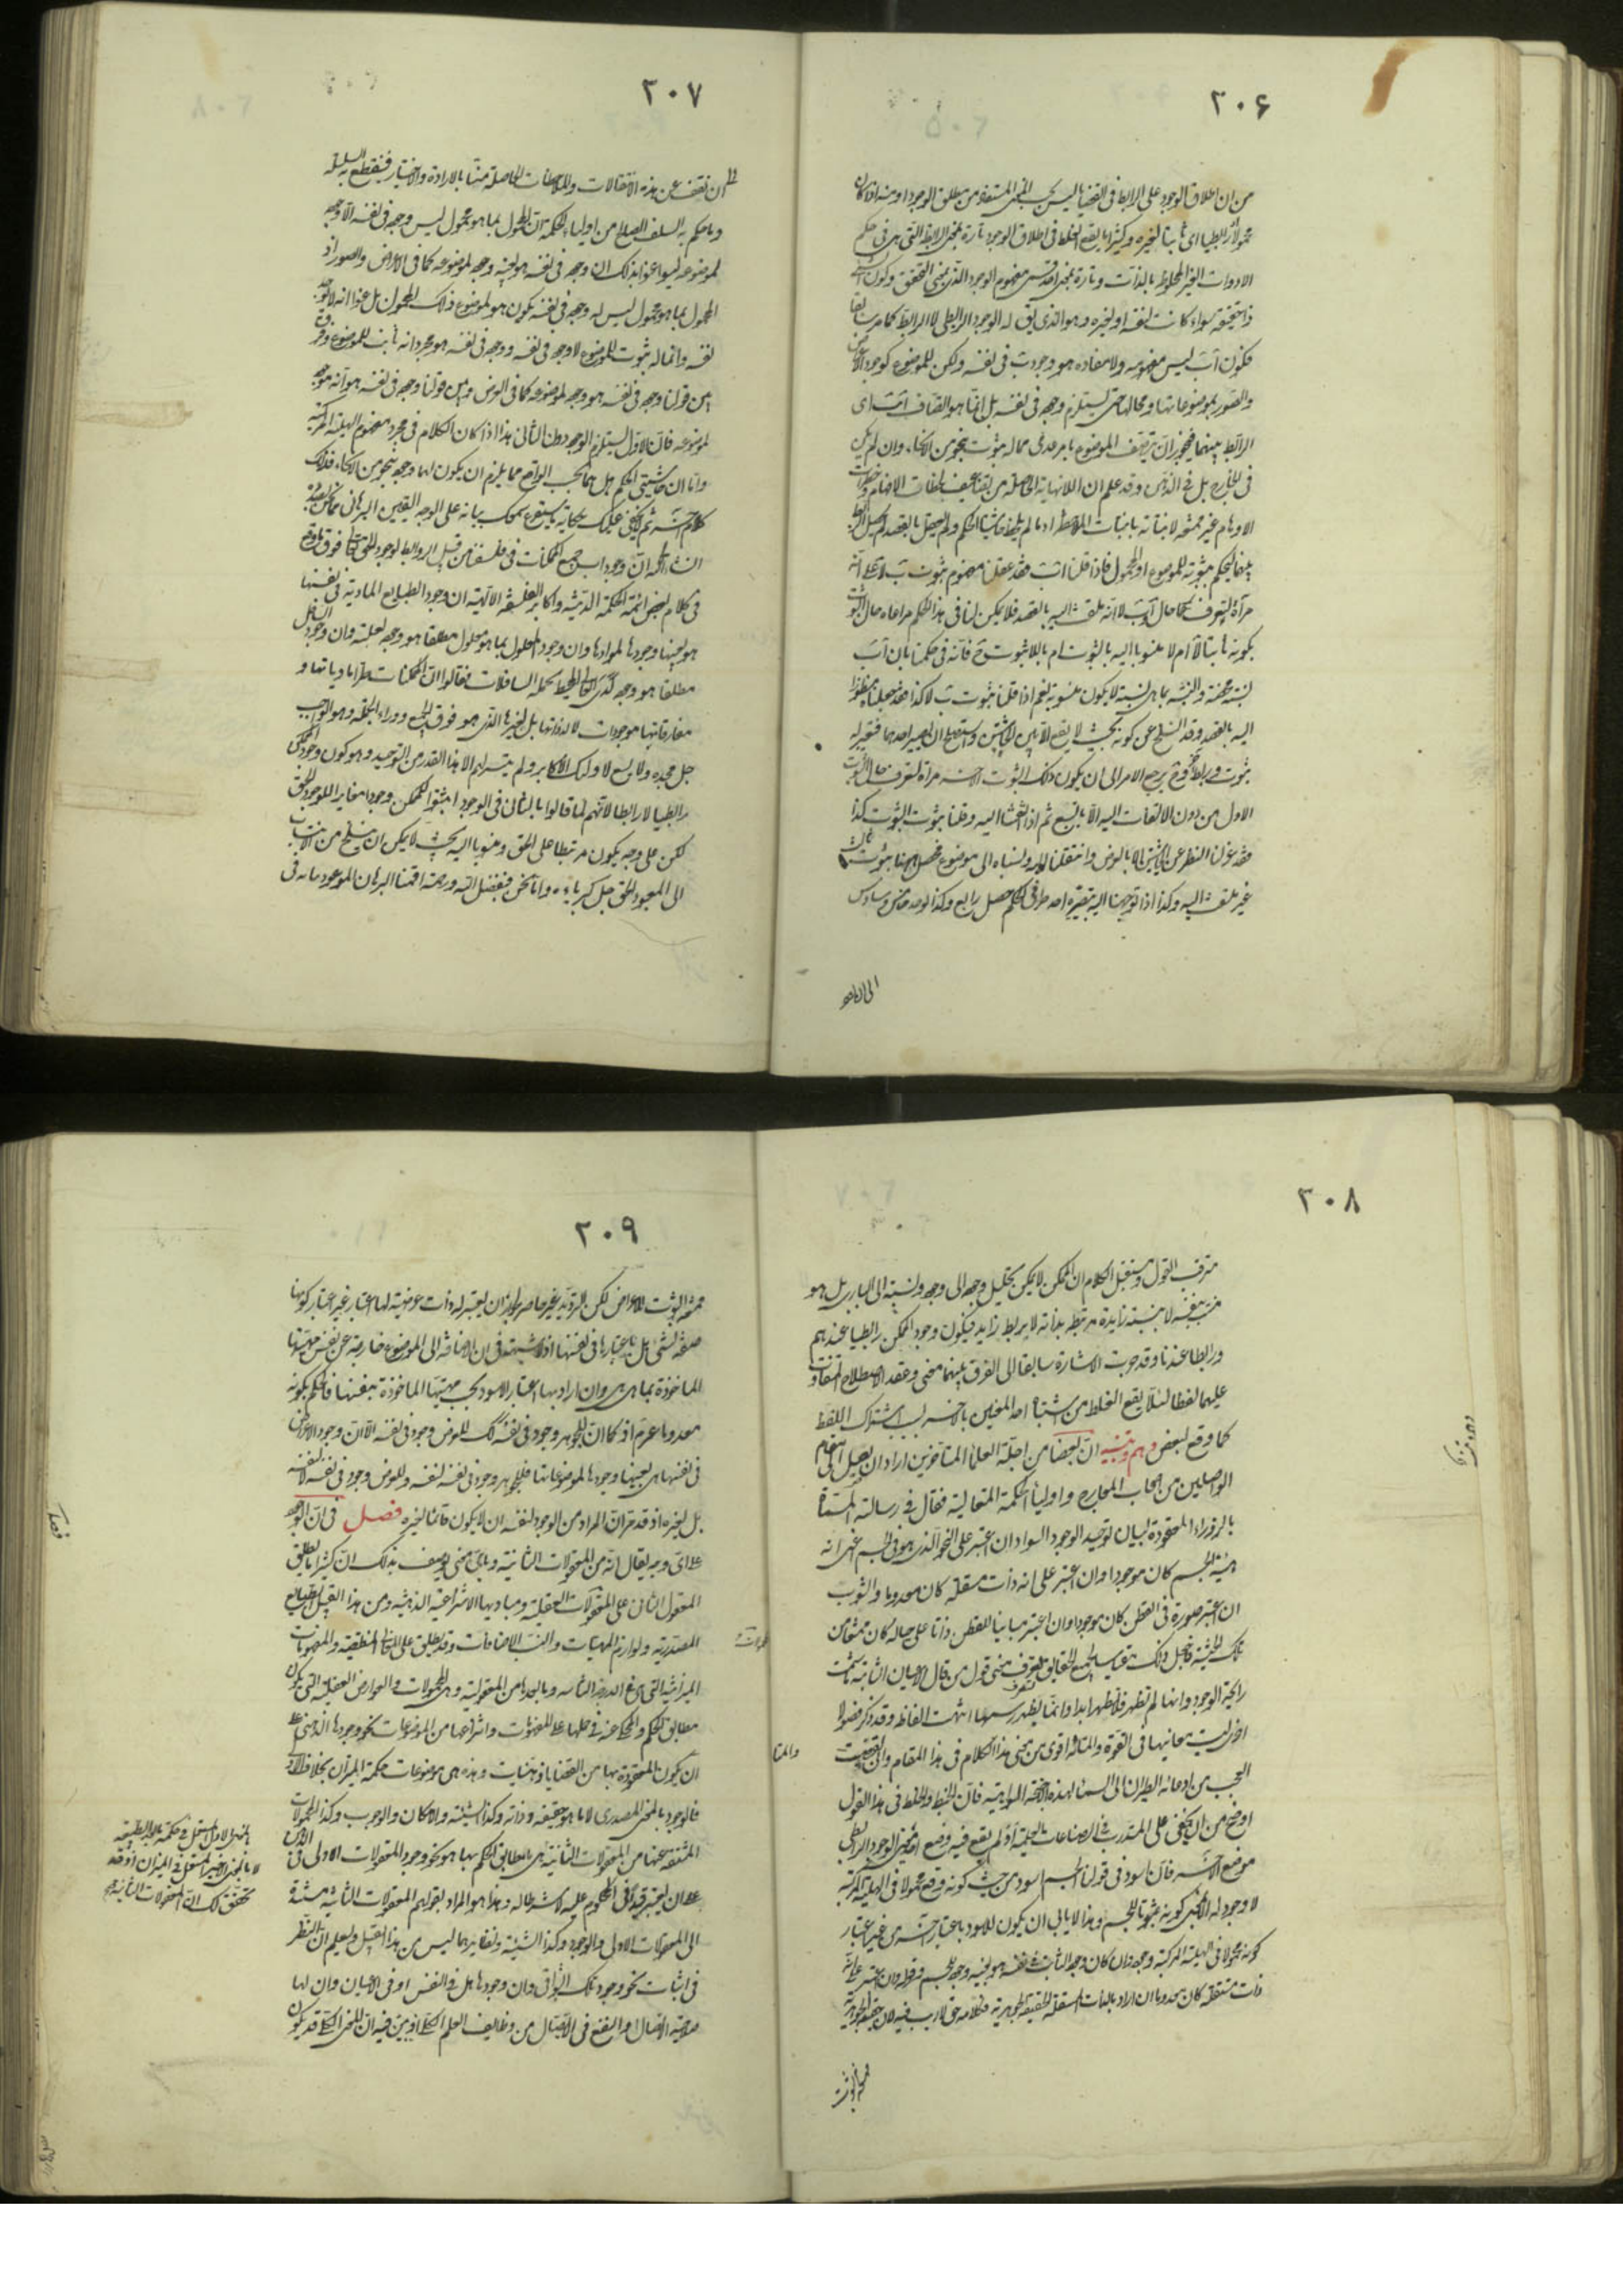 ٢٠۶
من ان اطلاق الوجود على الرابط فى القضايا ليس بحسب المعنى المستفاد من مطلق الوجود او منه اذا كان
محمولا او رابطيا اى ثابتا لغيره وكثيرا ما يقع الغلط فى اطلاق الوجود تارة بمعنى الرابطة التى هى فى حكم
الادوات الغير الملحوظة بالذات وتارة بمعنى احد قسمى مفهوم الوجود الذى بمعنى التحقق وكون الشىء
ذا تحقق سواء كان لنفسه او لغيره وهو الذى يق له الوجود الرابطى لا الرابط كما مر سابقا
فكون آ ب ليس مفهومه ولا مفاده هو وجود ب فى نفسه ولكن للموضوع كوجود الاعراض
والصور لموضوعاتها ومحالها حتى يستلزم وجوده فى نفسه بل انما هو اتصاف آ ب اى
الرابط بينهما فيجوز ان يتصف الموضوع بامر عدمى مما له ثبوت بنحو من الانحاء وان لم يكن
فى الخارج بل فى الذهن وقد علم ان اللانهاية الحاصلة من تضاعيف لحظات الاوهام وخطرات
الاوهام غير ممتنعة لانبتاته بانبتات الملاحظة اذ ما لم يلحظ حاشيتا الحكم ولم يعقل بالقصد لم يحصل الرابط
بينهما ليحكم بثبوته للموضوع او المحمول فاذا قلنا آ ب فقد عقلنا مفهوم ثبوت ب لآ على انه
مرآة لتعرف حال آ ب لا انه ملتفت اليه بالقصد فلا يمكن لنا فى هذا الحكم مراعاة حال الثبوت
بكونه ثابتا لآ ام لا منسوبا اليه بالثبوت ام باللاثبوت ح فانه فى حكمنا بان آ ب
نسبة محضة والنسبة بما هى نسبة لا يكون منسوبة نعم اذا قلنا ثبوت ب لآ كذا فقد جعلناه منظورا
اليه بالقصد وقد انسلخ عن كونه بحيث لا يقع الا بين حاشيتين واستصلح ان يصير احدهما فيعتبر له
ثبوت ورابط وح يرجع الامر الى ان يكون ذلك الثبوت الاخر مرآة لتعرف حال الثبوت
الاول من دون الالتفات اليه الا بالتبع ثم اذا التفتنا اليه وقلنا ثبوت الثبوت كذا
فقد عزلنا النظر عن حاشيتين الا بالعرض وانتقلنا اليه ونسبناه الى موضوع فحصل هيهنا ثبوت ثالث
غير ملتفت اليه وكذا اذا توجهنا اليه بتصييره احد طرفى الحكم حصل رابع وكذا يوجد خامس وسادس
الى ان نقف
٢٠٧
الى ان نقف عن هذه الالتفاتات والملاحظات الحاصلة منا بالارادة والاختيار فينقطع به السلسلة
وما حكم به السلف الصالح من اولياء الحكمة ان المحمول بما هو محمول ليس وجوده فى نفسه الا وجوده
لموضوعه ليسوا عنوا بذلك ان وجوده فى نفسه هو بعينه وجوده لموضوعه كما فى الاعراض والصور اذ
المحمول بما هو محمول ليس له وجود فى نفسه يكون هو لموضوع ذلك المحمول بل عنوا انه لا يوجد
نفسه وانما له ثبوت للموضوع لا وجود فى نفسه ووجوده فى نفسه هو مجرد انه ثابت للموضوع وفرق
بين قولنا وجوده فى نفسه هو وجوده لموضوعه كما فى العرض وبين قولنا وجوده فى نفسه هو انه موجود
لموضوعه فان الاول يستلزم الوجود دون الثانى هذا اذا كان الكلام فى مجرد مفهوم الهلية المركبة
واما ان حاشيتى الحكم هل هما بحسب الواقع مما يلزم ان يكون لهما وجود بنحو من الانحاء فذلك
كلام آخر ثم لا يخفى عليك حكاية ما سيقرع سمعك بيانه على الوجه اليقينى البرهانى مما نحن بصدده
انشاء الله ان وجود جميع الممكنات فى فلسفتنا من قبيل الروابط لوجود الحق تعالى فوق ما وقع
فى كلام بعض ائمة الحكمة الدينية واكابر الفلسفة الالهية ان وجود الطبايع المادية فى نفسها
هو بعينها وجودها لموادها وان وجود المعلول بما هو معلول مطلقا هو وجوده لعلته وان وجود السافل
مطلقا هو وجوده لدى العالى المحيط بجملة السافلات فقالوا ان الممكنات طرا مادياتها و
مفارقاتها موجودات لا لذواتها بل لغيرها الذى هو فوق الجميع ووراء الجملة وهو الواجب
جل مجده ولا يسع لاولئك الاكابر ولم يتيسر لهم الا هذا القدر من التوحيد وهو كون وجود الممكن
رابطيا لا رابطا لانهم لما قالوا بالثانى فى الوجود اثبتوا للممكن وجودا مغايرا للوجود الحق
لكن على وجه يكون مرتبطا الى الحق ومنسوبا اليه بحيث لا يمكن ان ينسلخ من الانتساب
الى المعبود الحق جل كبرياءه واما نحن فبفضل الله ورحمته اقمنا البرهان الموعود بيانه فى
٢٠٨
مترقب القول ومستقبل الكلام ان الممكن لا يمكن تحليل وجوده الى وجود ونسبة الى البارى بل هو
منتسب بنفسه لا بنسبة زايدة مرتبط بذاته لا بربط زايد فيكون وجود الممكن رابطيا عندهم
ورابطا عندنا وقد مرت الاشارة سابقا الى الفرق بينهما معنى وعقد الاصطلاح المتفاوت
عليهما لفظا لئلا يقع الغلط من اشتباه احد المعنيين بالاخر بسبب اشتراك اللفظ
كما وقع لبعض وهم وتنبيه ان بعضا من اجلة العلماء المتاخرين اراد ان يصل الى مقام
الواصلين من اصحاب المعارج واولياء الحكمة المتعالية فقال فى رسالته المسماة
بالزوراء المعقودة لبيان توحيد الوجود السواد ان اعتبر على النحو الذى هو فى الجسم اعنى انه
هيئة الجسم كان موجودا وان اعتبر على انه ذات مستقلة كان معدوما والثوب
ان اعتبر صورة فى القطن كان موجودا وان اعتبر مباينا للقطن ذاتا على حياله كان ممتنعا من
تلك الحيثية فاجعل ذلك مقياسا لجميع الحقايق لتعرف معنى قول من قال الاعيان الثابتة ما شمت
رايحة الوجود وانها لم تظهر ولا تظهر ابدا وانما يظهر رسمها انتهت الفاظه وقد ذكر فصولا
اخر ليست معانيها فى القوة والمتانة اقوى من معنى هذا الكلام فى هذا المقام ولقد قضيت
العجب من ادعائه الطيران الى السماء بهذه الاجنحة الواهية فان الخبط والخلط فى هذا القول
اوضح من ان يخفى على المتدرب فى الصناعات العلمية أولم يقع فيه وضع احد معنيى الوجود الرابطى
موضع الاخر فان اسود فى قولنا الجسم اسود من حيث كونه وقع محمولا فى الهلية المركبة
لا وجود له الا بمعنى كونه ثبوتا للجسم وهذا لا يابى ان يكون للاسود باعتبار آخر غير اعتبار
كونه محمولا فى الهلية المركبة وجود وان كان وجوده الثابت فى نفسه هو بعينه وجوده للجسم وقوله وان اعتبر على انه
ذات مستقلة كان معدوما ان اراد بالذات المستقلة الحقيقة الجوهرية فكلامه حق لا ريب فيه لان حقيقة الجوهرية
ممتنعة الثبوت
٢٠٩
ممتنعة الثبوت للاعراض لكن الترديد غير حاصر لجواز ان يعتبر له ذات عرضية لها اعتبار غير اعتبار كونها
صفة لشىء بل باعتبارها فى نفسها اذ لا شبهة فى ان الاضافة الى الموضوع خارجة عن نفس مهيتها
الماخوذة بما هى هى وان اراد بها اعتبار الاسود بحسب مهيتها الماخوذة بنفسها فالحكم بكونه
معدوما غير مر اذ كما ان للجوهر وجود فى نفسه كك للعرض وجود فى نفسه الا ان وجود الاعراض
فى نفسها هى بعينها وجودها لموضوعاتها فللجوهر وجود فى نفسه لنفسه وللعرض وجود فى نفسه لا لنفسه
بل لغيره اذ قد مر ان المراد من الوجود لنفسه ان لا يكون قائما لغيره فصل فى ان الوجود
على اى وجه يقال انه من المعقولات الثانية وباى معنى يوصف بذلك ان كثيرا ما يطلق
المعقول الثانى على المحمولات العقلية ومباديها الانتزاعية الذهنية ومن هذا القبيل الطبايع
المصدرية ولوازم المهيات والنسب والاضافات وقد يطلق على المعانى المنطقية والمفهومات
الميزانية التى هى فى الدرجة الثانية وما بعدها من المعقولية وهى المحمولات والعوارض العقلية التى يكون
مطابق الحكم والمحكى عنه فى حملها على المفهومات وانتزاعها من الموضوعات نحو وجودها الذهنى على
ان يكون المعقودة بها من القضايا ذهنيات وهذه هى موضوعات حكمة الميزان بخلاف الاول
فالوجود بالمعنى المصدرى لا ما هو حقيقته وذاته وكذا الشيئية والامكان والوجوب وكذا المحمولات
المشتقة منها من المعقولات الثانية التى ما يطابق الحكم بها هو نحو وجود المعقولات الاولى فى الذهن
على ان يعتبر قيدا فى المحكوم عليه لا شرطا له وهذا هو المراد بقولهم المعقولات الثانية مستندة
الى المعقولات الاولى والوجود وكذا الشيئية ونظايرهما ليس من هذا القبيل وليعلم ان النظر
فى اثبات نحو وجود تلك الثوانى وان وجودها هل فى النفس او فى الاعيان وان لها
صلاحية الايصال او النفع فى الايصال من وظايف العلم الكلى اذ يبين فيه ان المعنى الكلى قد يكون
بالمعنى الاول المستعمل فى حكمة ما بعد الطبيعة
لا بالمعنى الاخير المستعمل فى الميزان اذ قد
تحقق لك ان المعقولات الثانية هى